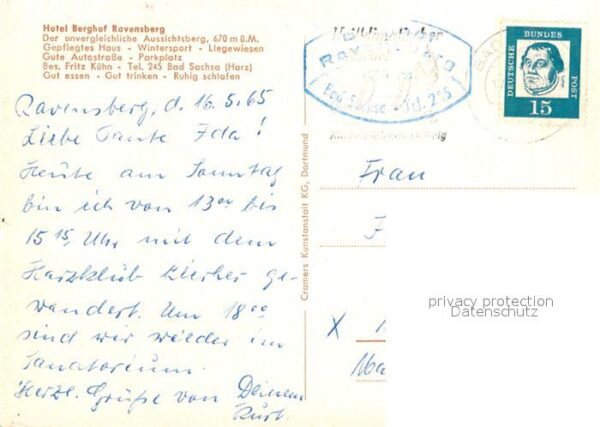 Hotel Berghof Ravensberg
Der unvergleichliche Aussichtsberg, 670 m ü.M.
Gepflegtes Haus - Wintersport - Liegewiesen
Gute Autostraße - Parkplatz
Bes. Fritz Kühn - Tel. 245 Bad Sachsa (Harz)
Gut essen - Gut trinken - Ruhig schlafen
Ravensberg, d. 16.5.65
Liebe Tante Ida!
Heute am Sonntag
bin ich von 13⁰⁰ bis
15¹⁵ Uhr mit dem
Harzklub hierher ge-
wandert. Um 18⁰⁰
sind wir wieder im
Sanatorium.
Herzl. Grüße von Deinem
Kurt.
Cramers Kunstanstalt KG, Dortmund
Tel. 245
BAD
DEUTSCHE BUNDESPOST
15
Frau
F
X
privacy protection
Datenschutz